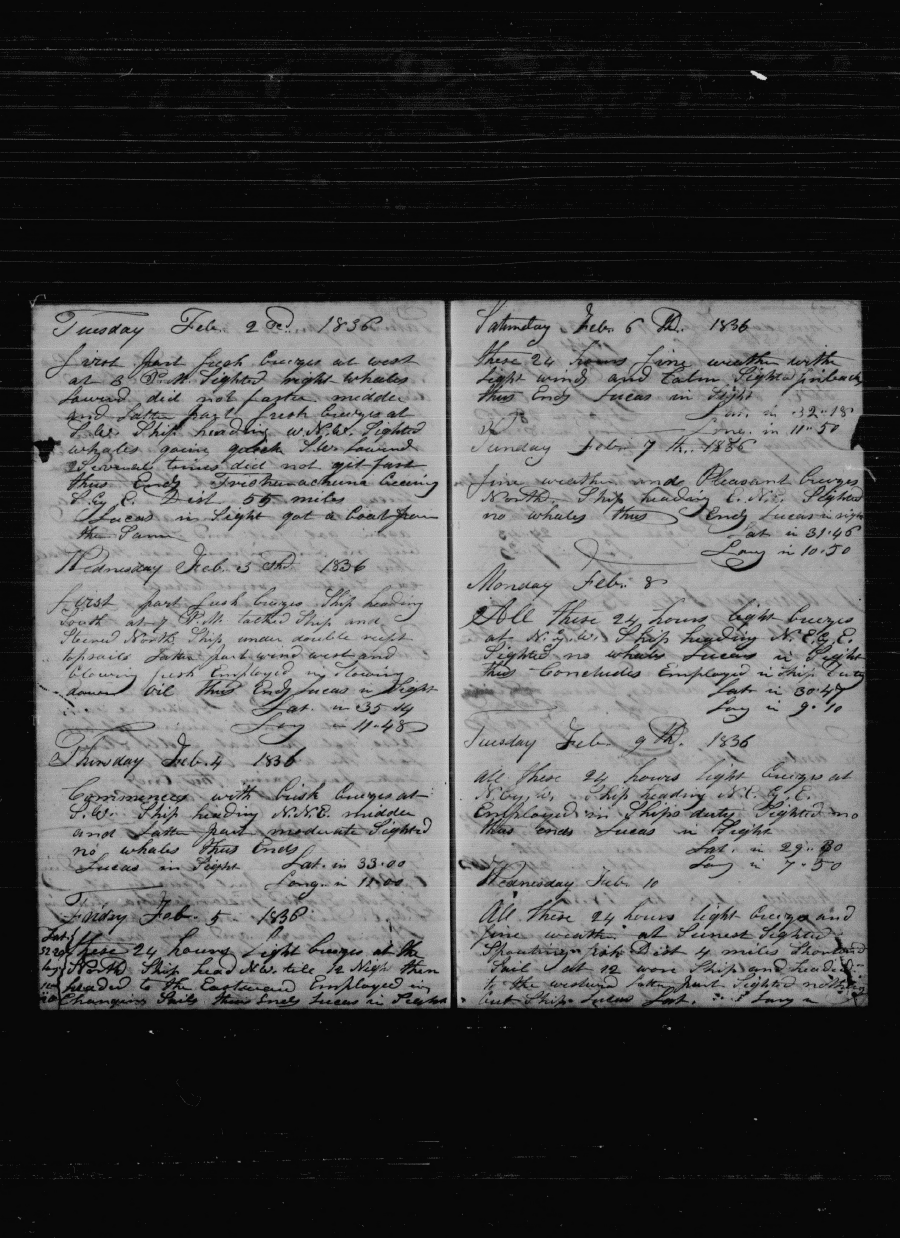 Tuesday Feb. 2 cd. 1836
first part fresh breezes at west
at 3 P.M. Sighted right whales
lowerd did not fasten middle
and Latter part fresh breezes at
S.W. Ship heading W.N.W. Sighted
whales going quick S.W. lowerd
Several times did not get fast
thus Ends beering
S. by E. Dist 55 miles
Lucas in Sight got a boat from
the Same
Wednesday Feb. 3 rd. 1836
first part fresh breezes Ship heading
South at 7 P.M. tacked Ship and
Steerd North Ship under double reeft
topsails Latter part wind west and
blowing fresh Employed in Stowing
down oil thus Ends Lucas in Sight
Lat. in 35..14
Long in 11..48
Thursday Feb. 4 1836
Commences with brisk breezes at
S.W. Ship heading N.N.E. middle
and Latter part moderate Sighted
no whales thus Ends
Lucas in Sight Lat. in 33..00
Long. in 11..00
Friday Feb. 5. 1836
Lat
these 24 hours light breezes at the
North Ship head N.W. till 12 Nigh then
headed to the Eastward Employed in
Changing Sails thus Ends Lucas in Sight
Saturday Feb. 6 Th. 1836
these 24 hours fine weather with
light winds and Calm Sighted finbacks
thus Ends Lucas in Sight
Lat. in 32..18
Long. in 11..50
Sunday Feb. 7 th. 1836
fine weather and Pleasant breezes
North. Ship heading E.N.E. Sighted
no whales thus Ends Lucas in sight
Lat in 31..46
Long in 10..50
Monday Feb. 8
All these 24 hours light breezes
at N.W. Ship heading N.E. by E.
Sighted no whales Lucas in Sight
thus Concludes Employed in Ship Duty
Lat in 30..47
Long in 9..10
Tuesday Feb. 9 Th. 1836
all these 24 hours light breezes at
N. by W. Ship heading N.E. by E.
Employed in Ships duty Sighted no
thus ends Lucas in Sight
Lat. in 29..30
Long in 7..50
Wednesday Feb. 10
All these 24 hours light breezes and
fine weather at Sunset Sighted
Spouting fish Dist 4 miles Shortend
Sail at 12 wore Ship and headed
to the westward latter part Sighted nothing
but Ship Lucas Lat. Long